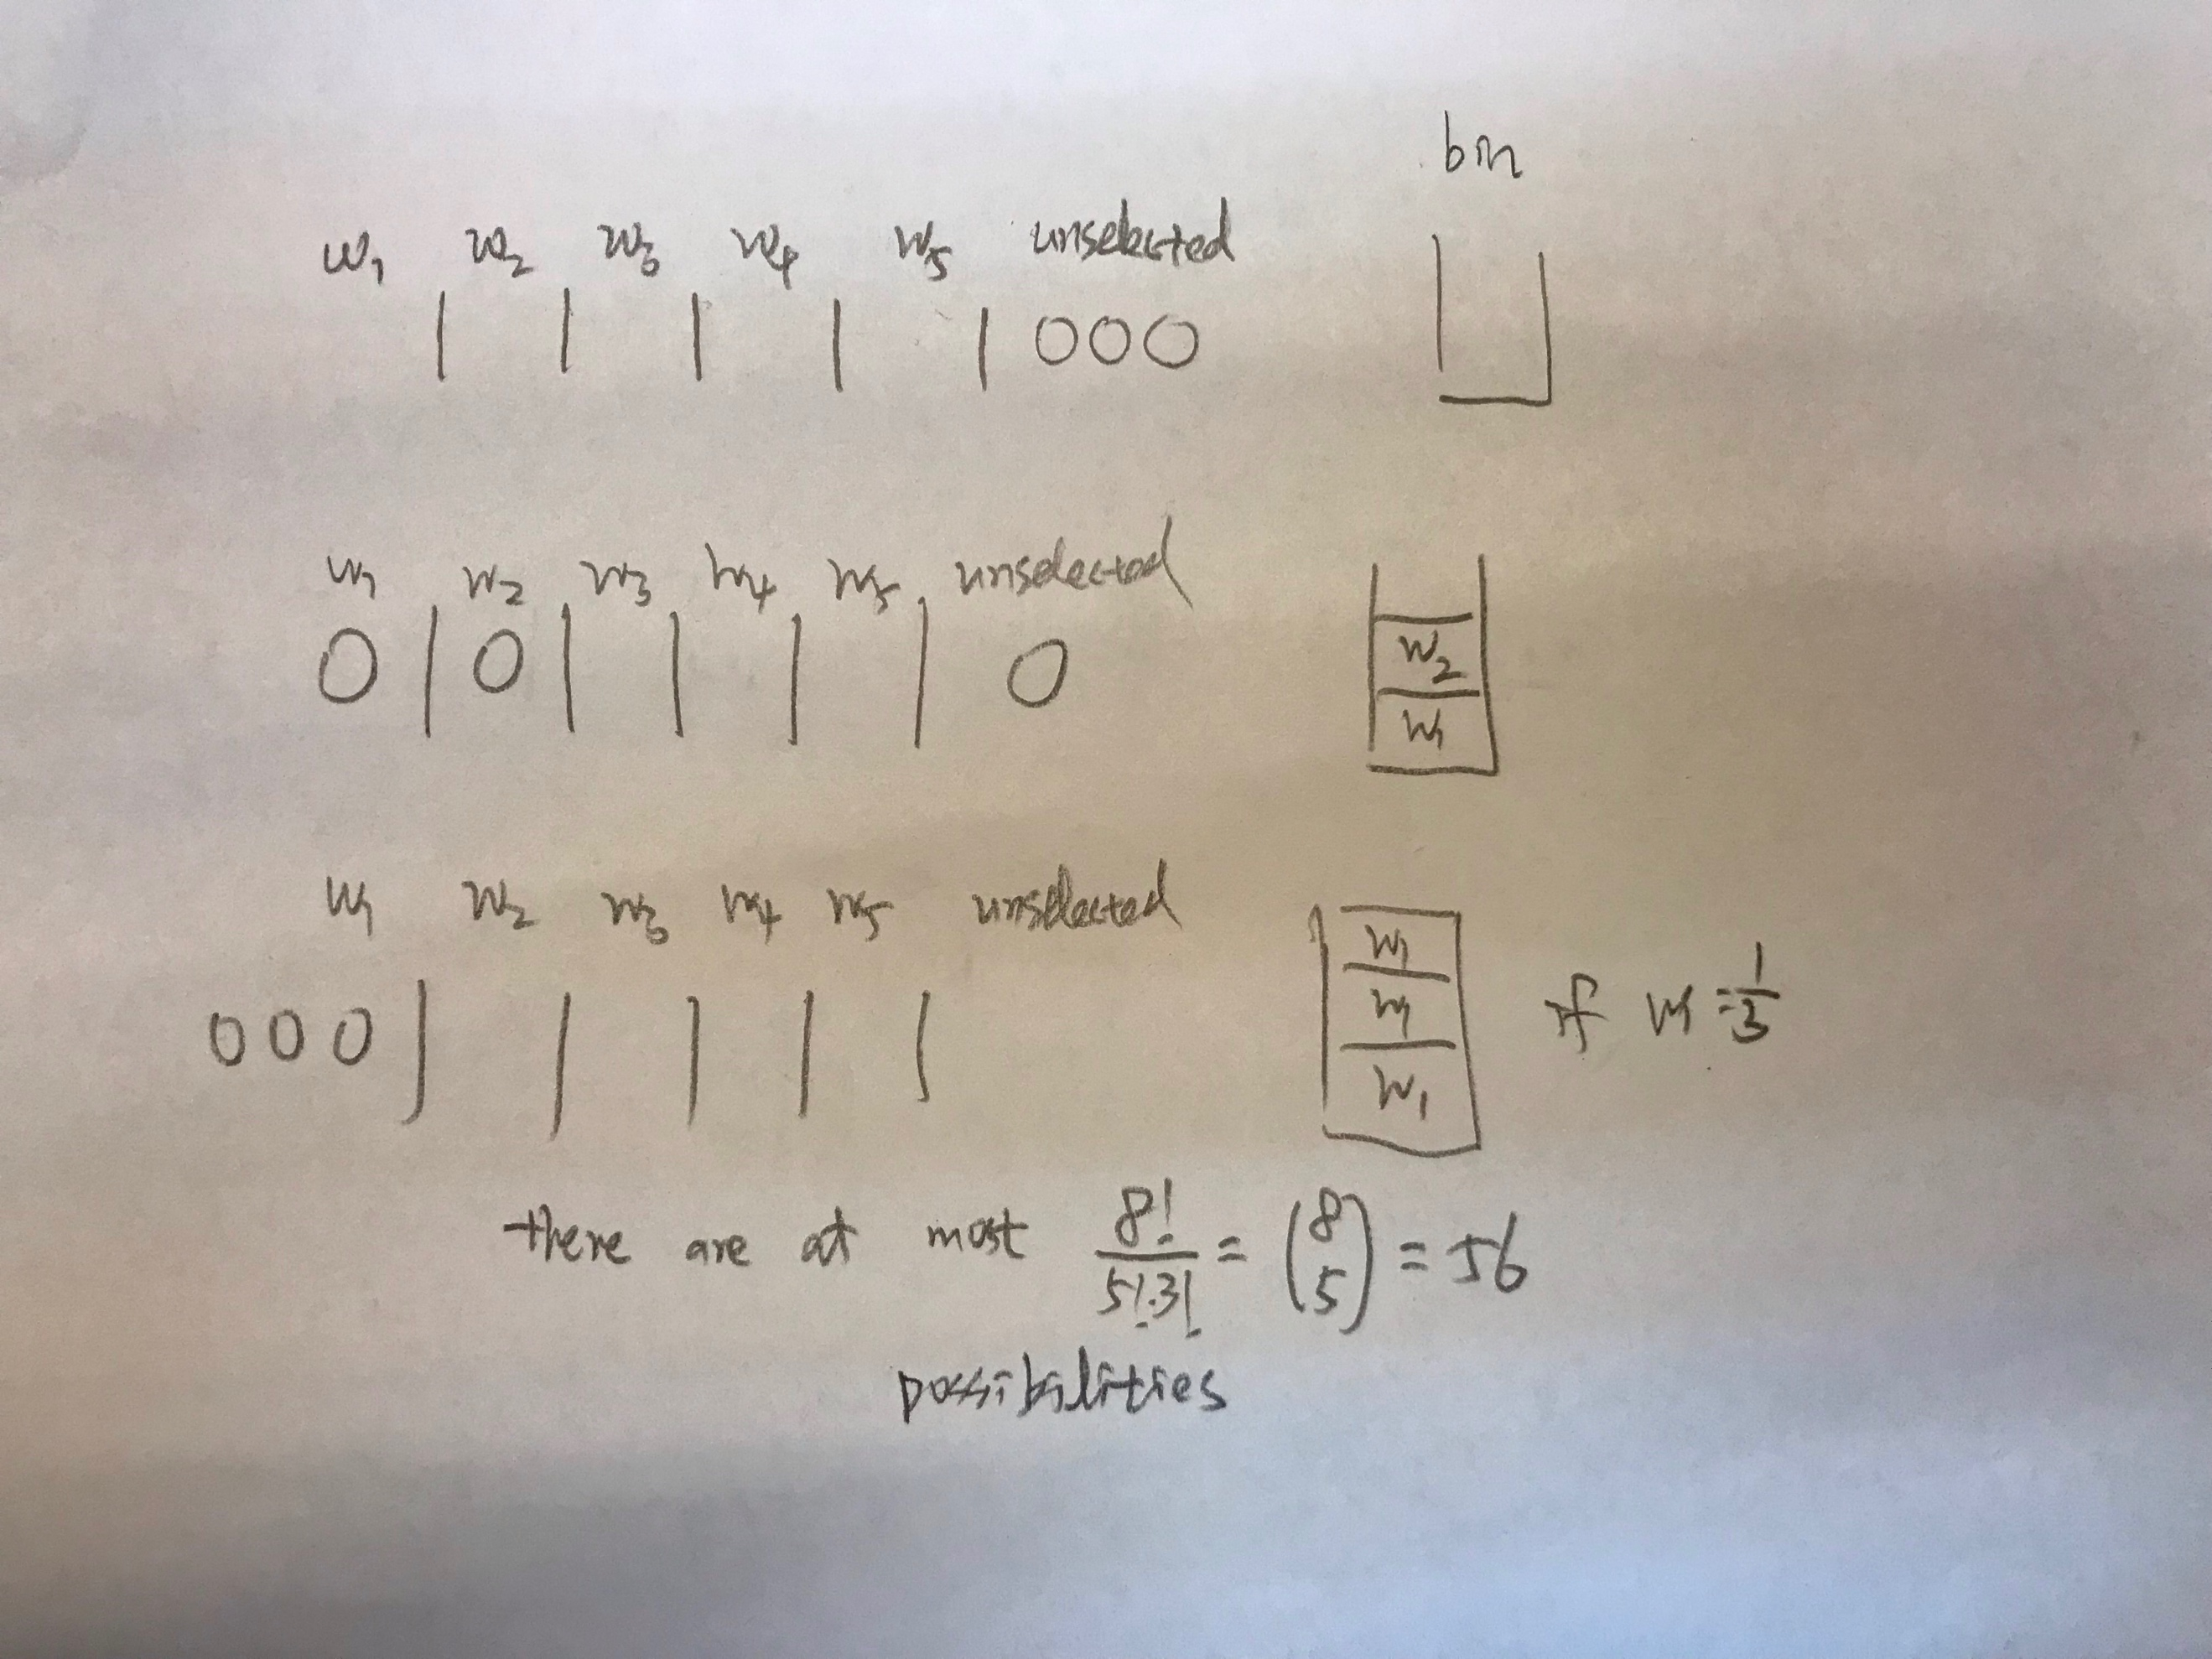 bin
w₁ w₂ w₃ w₄ w₅ unselected
| | | | | OOO
w₁ w₂ w₃ w₄ w₅ unselected
O | O | | | | O
w₂
w₁
w₁ w₂ w₃ w₄ w₅ unselected
OOO | | | | |
w₁
w₁ if w₁ = 1/3
w₁
there are at most 8!/(5!·3!) = (8 5) = 56
possibilities